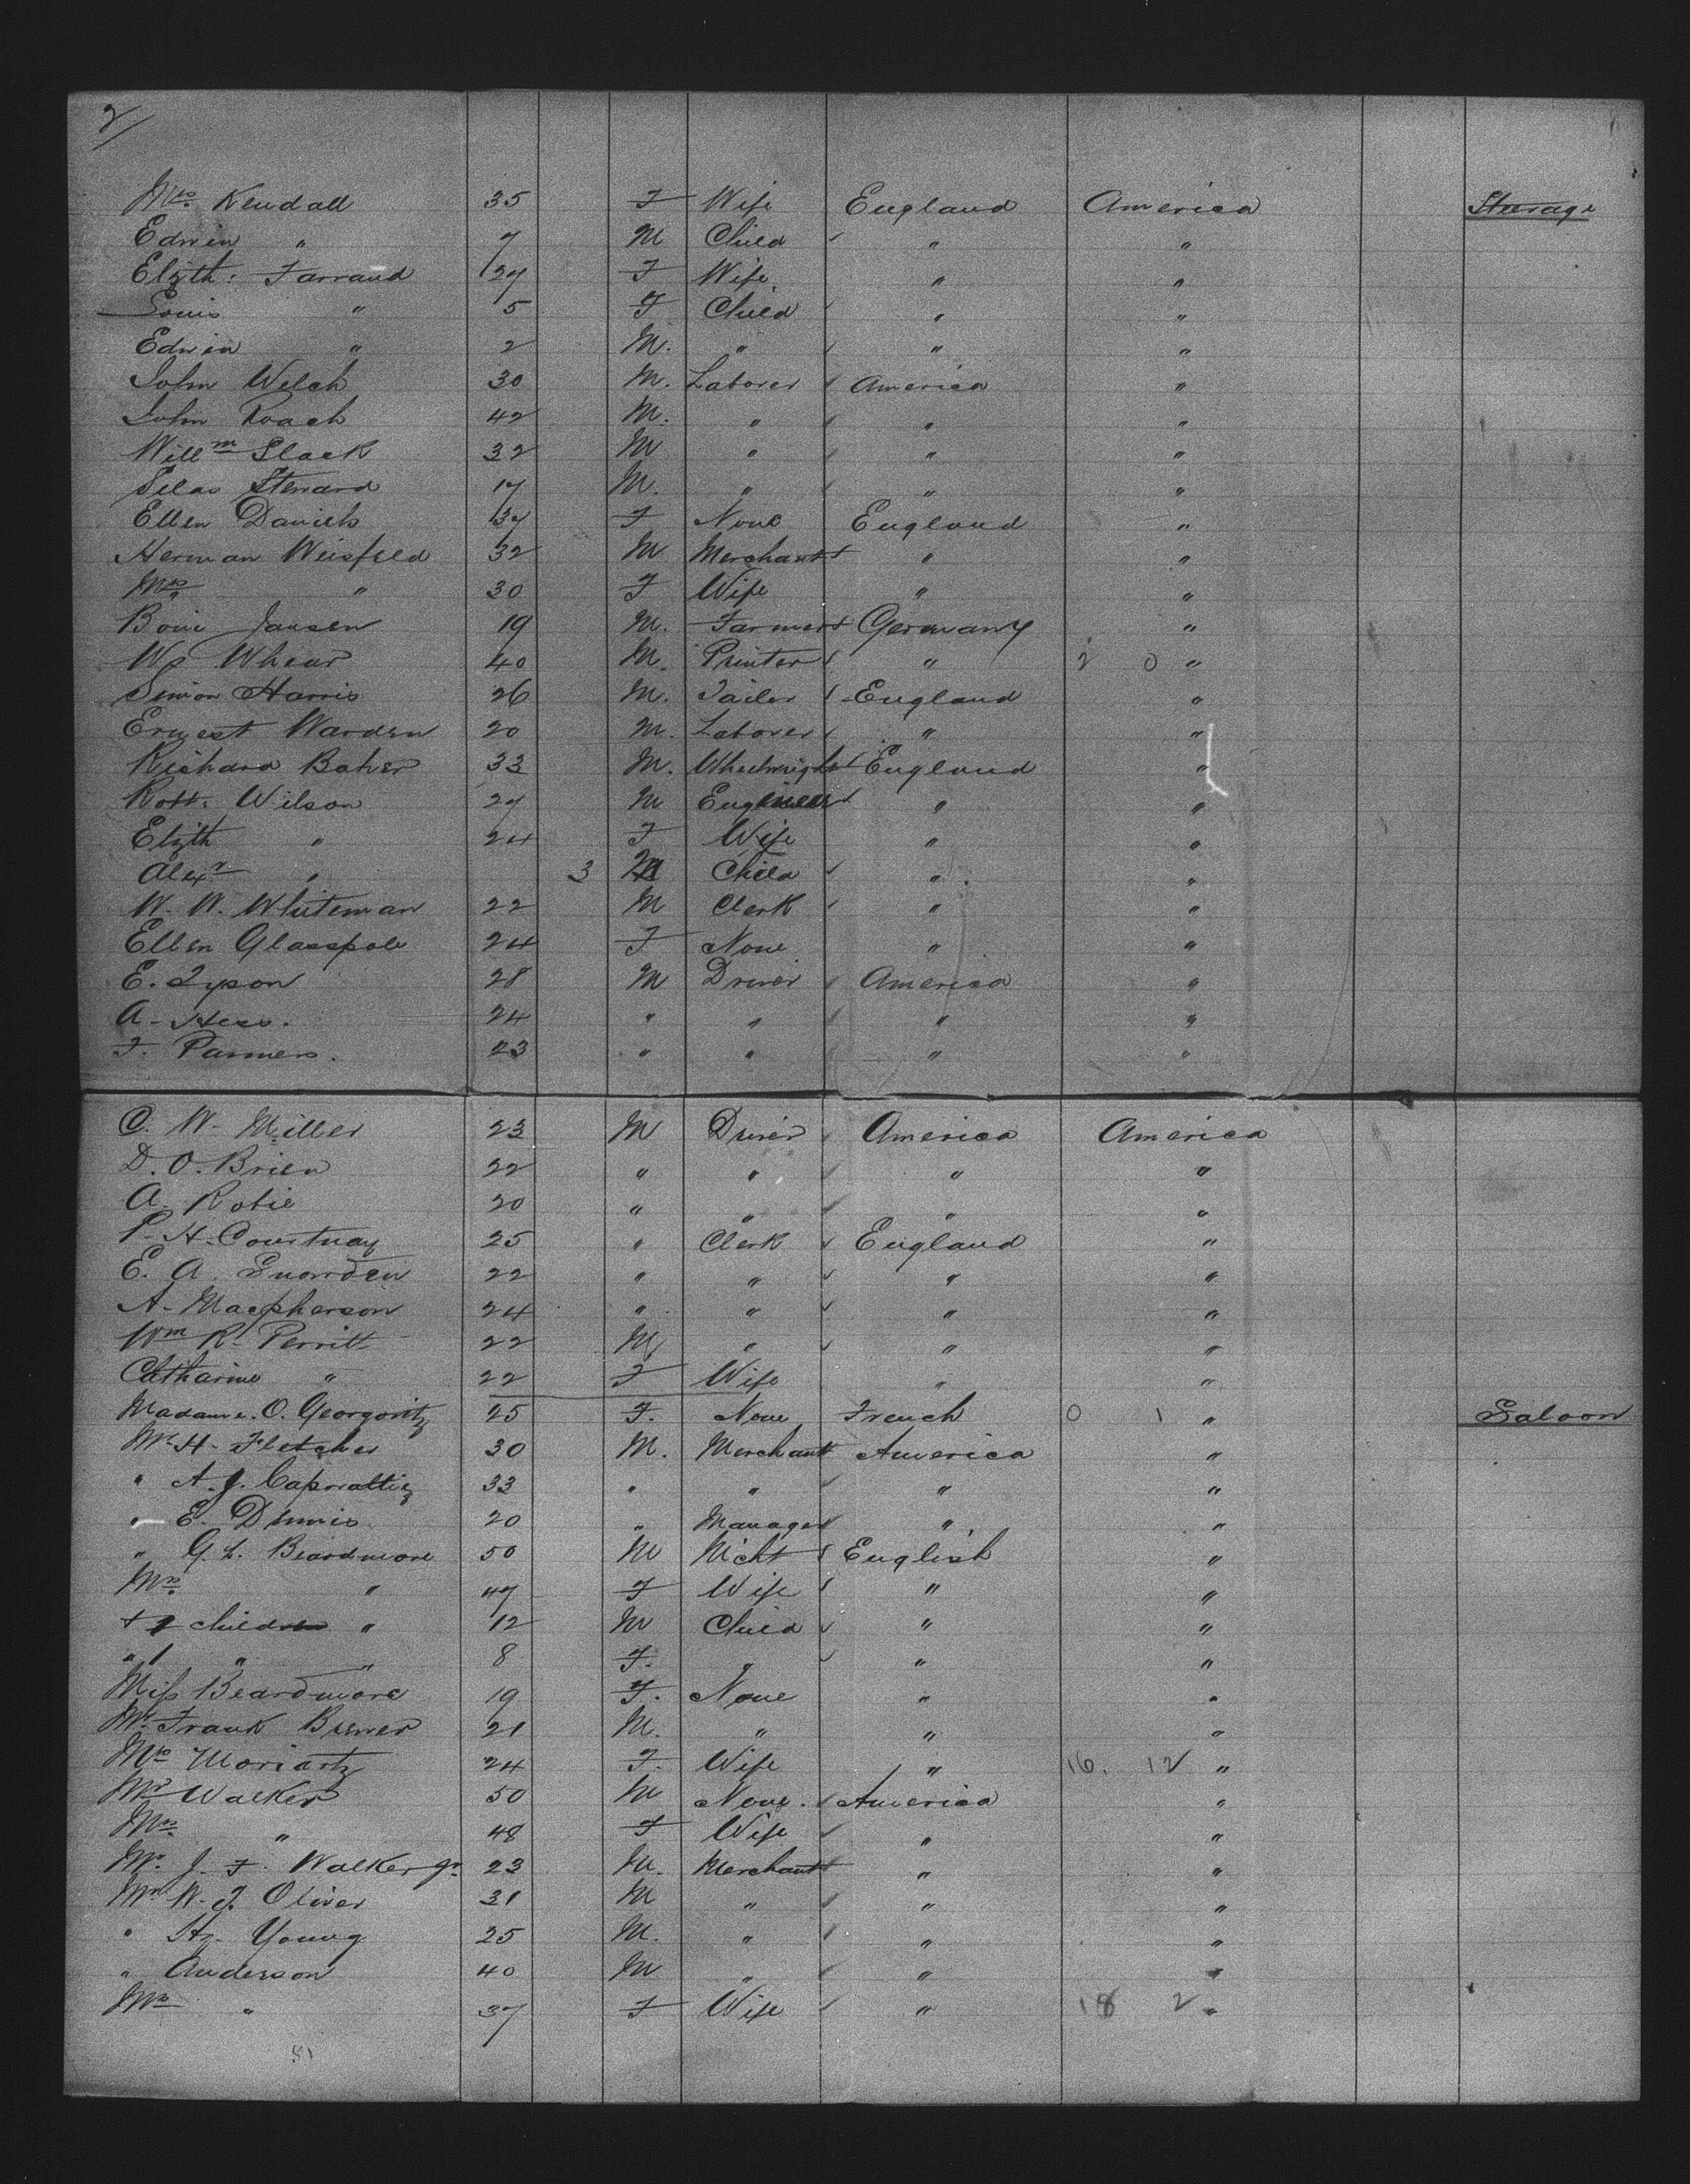 2/
Mrs. Kendall 35 F Wife England America Steerage
Edwin " 7 M Child " "
Elzth: Farrand 27 F Wife " "
Louis " 5 F Child " "
Edwin " 2 M. " " "
John Welch 30 M. Laborer America "
John Roach 42 M. " " "
Willm Slack 32 M " " "
Silas Steward 17 M. " " "
Ellen Daniels 37 F None England "
Herman Weisfeld 32 M Merchant " "
Mrs " 30 F Wife " "
Boui Jansen 19 M. Farmer Germany "
Whear 40 M. Printer " 2 0 "
Simon Harris 26 M. Tailor England "
Ernest Warden 20 M. Laborer " "
Richard Baker 33 M. Wheelwright England "
Robt. Wilson 27 M Engineer " "
Elzth " 24 F Wife " "
Alexr " 3 M Child " "
W. W. Whiteman 22 M Clerk " "
Ellen Glasspole 24 F None " "
E. Tyson 28 M Driver America "
A. Hess. 24 " " " "
F. Parmers. 23 " " " "
C. W. Miller 23 M Driver America America
D. O. Brien 22 " " " "
A. Robie 20 " " " "
P. H. Courtnay 25 " Clerk England "
E. A. Snowden 22 " " " "
A. Macpherson 24 " " " "
Wm R. Perritt 22 M " " "
Catharine " 22 F Wife " "
Madame. O. Georgovitz 25 F. None French 0 1 " Saloon
Mr H. Fletcher 30 M. Merchant America "
" A. J. 33 " " " "
" E. Dennis 20 " Manager " "
" G. L. Beardmore 50 M Mcht English "
Mrs. " 47 F Wife " "
+ 1 child " 12 M Child " "
" 1 " " 8 F. " " "
Miss Beardmore 19 F. None " "
Mr. Frank Brewer 21 M. " " "
Mrs Moriarty 24 F. Wife " 16. 12 "
Mr Walker 50 M None. America "
Mrs. " 48 F Wife " "
Mr. J. F. Walker Jr. 23 M. Merchant " "
Mr W. J. Oliver 31 M " " "
" Hy. Young 25 M. " " "
" Anderson 40 M " " "
Mrs " 37 F Wife " 18 2 "
51